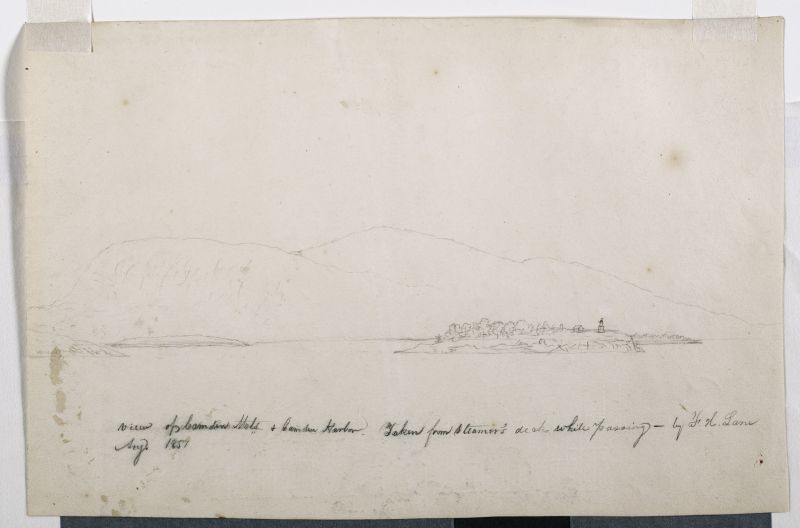 view of Camden Hills & Camden Harbor. Taken from steamer's deck while passing – by F. H. Lane
Augt 1851